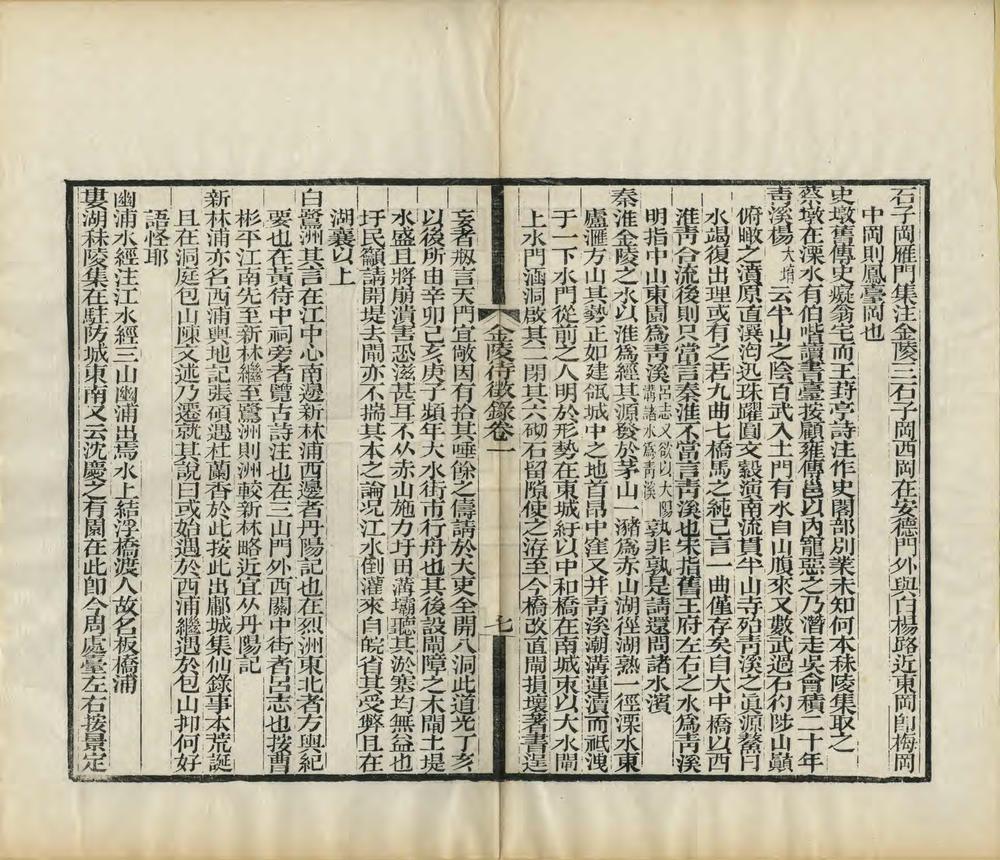 石子岡雁門集注金陵三石子岡西岡在安德門外與白楊路近東岡卽梅岡
中岡則鳳臺岡也
史墩舊傳史癡翁宅而王葑亭詩注作史閣部別業未知何本秣陵集取之
蔡墩在溧水有伯喈讀書臺按顧雍傳邕以內寵惡之乃潛走吳會積二十年
靑溪楊大堉云半山之陰百武入土門有水自山腹來又數武過石彴陟山巔
俯瞰之濆原直瀵洶迅珠躍圓文縠演南流貫半山寺殆靑溪之眞源鰲曰
水竭復出理或有之若九曲七橋馬之純已言一曲僅存矣自大中橋以西
淮靑合流後則只當言秦淮不當言靑溪也未指舊王府左右之水爲靑溪
明指中山東園爲靑溪呂志又欲以大陽溝諸水爲靑溪孰非孰是請還問諸水濱
秦淮金陵之水以淮爲經其源發於茅山一瀦爲赤山湖徑湖熟一徑溧水東
廬滙方山其勢正如建瓴城中之地首昂中窪又并靑溪潮溝運瀆而祇洩
于一下水門從前之人明於形勢在東城紆以中和橋在南城束以大水閘
上水門涵洞啟其二閉其六砌石留隙使之洊至今橋改直閘損壞著書逞
金陵待徵錄卷一
七
妄者輒言天門宜敞因有拾其唾餘之儔請於大吏全開八洞此道光丁亥
以後所由辛卯己亥庚子頻年大水街市行舟也其後設閘障之木閘土堤
水盛且將崩潰害恐滋甚耳不从赤山施力圩田溝壩聽其淤塞均無益也
圩民籲請開堤去閘亦不揣其本之論況江水倒灌來自皖省其受弊且在
湖襄以上
白鷺洲其言在江中心南邊新林浦西邊者丹陽記也在烈洲東北者方輿紀
要也在黃侍中祠旁者覽古詩注也在三山門外西關中街者呂志也按曹
彬平江南先至新林繼至鷺洲則洲較新林略近宜从丹陽記
新林浦亦名西浦輿地記張碩遇杜蘭香於此按此出鄘城集仙錄事本荒誕
且在洞庭包山陳文述乃遷就其說曰或始遇於西浦繼遇於包山抑何好
語怪耶
幽浦水經注江水經三山幽浦出焉水上結浮橋渡人故名板橋浦
婁湖秣陵集在駐防城東南又云沈慶之有園在此卽今周處臺左右按景定